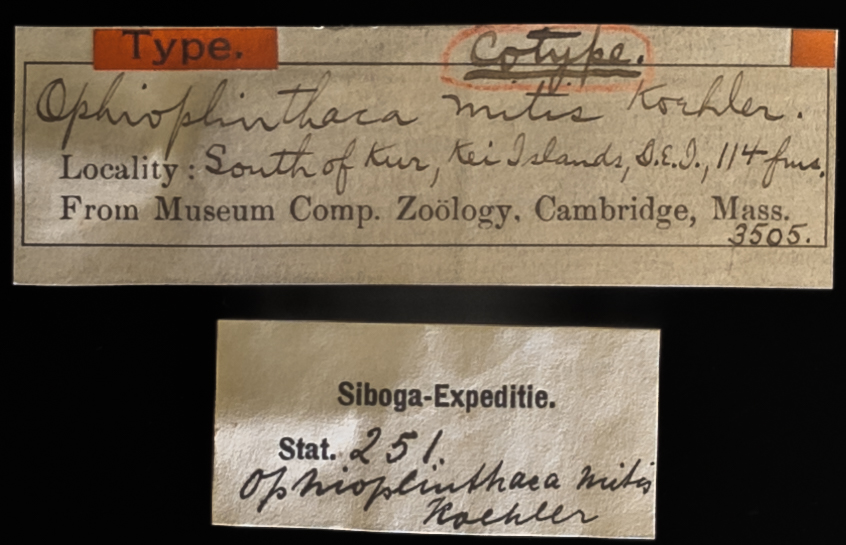 Type.
Cotype.
Ophioplinthaca mitis Koehler.
Locality: South of Kur, Kei Islands, D.E.I., 114 fms.
From Museum Comp. Zoölogy, Cambridge, Mass.
3505.
Siboga-Expeditie.
Stat. 251.
Ophioplinthaca mitis
Koehler